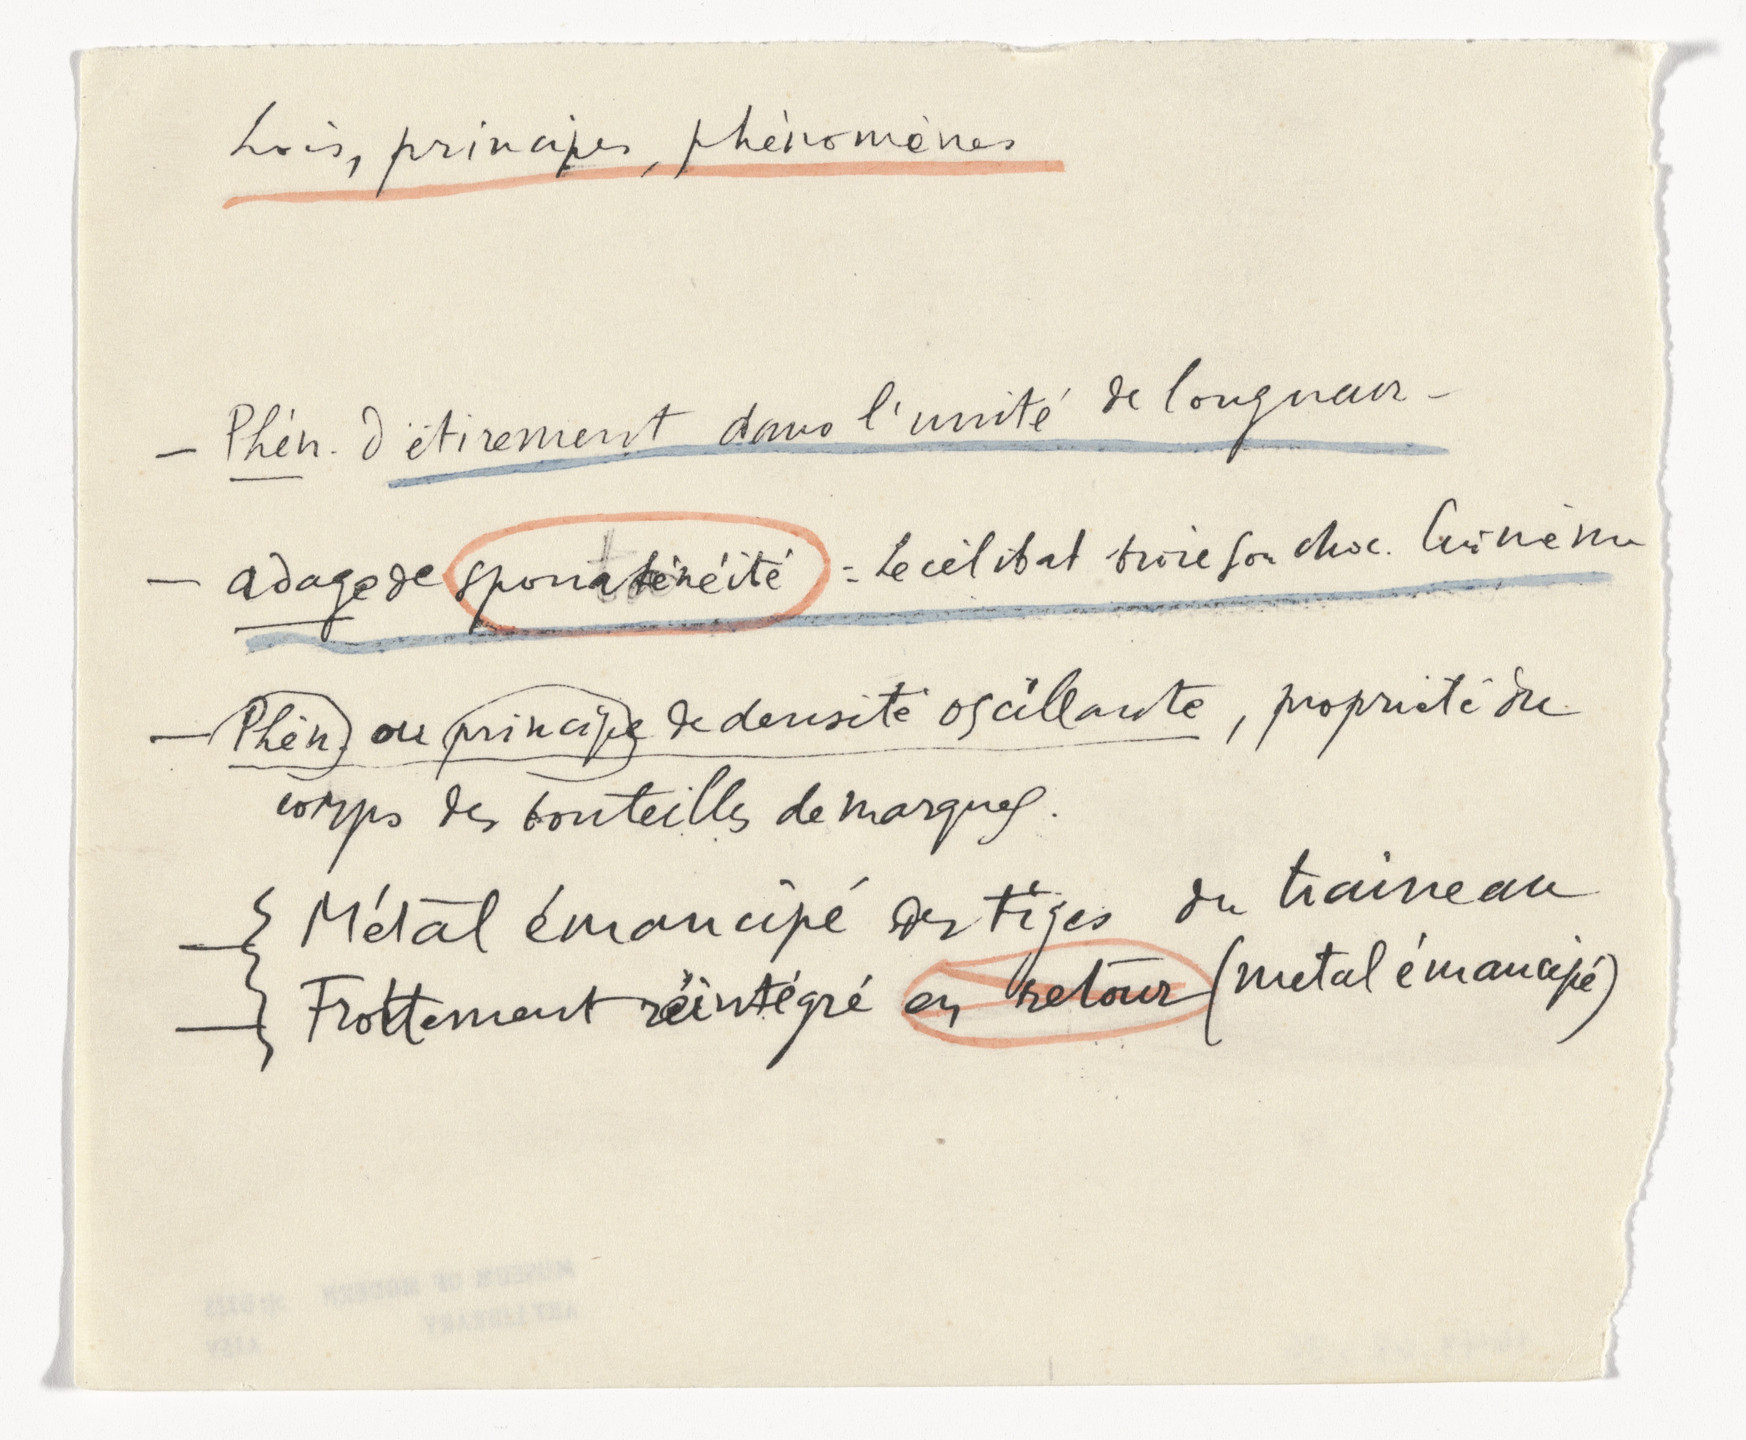 Lois, principes, phénomènes
— Phén. d'étirement dans l'unité de longueur —
— adage de spontanéité = Le célibat broie son choc. lui même
— Phén. ou principe de densité oscillante, propriété du
corps des bouteilles de marques.
— { Métal émancipé des tiges du traineau
— { Frottement réintégré en retour (metal émancipé)
MUSEUM OF MODERN
ART LIBRARY